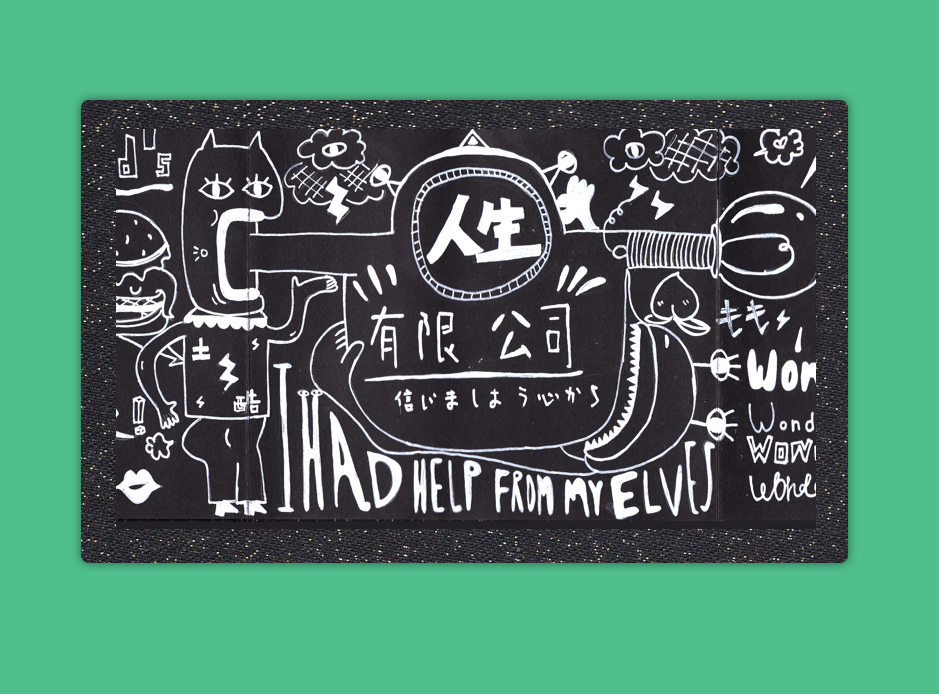 d's
人生
有限 公司
信じましょう心から
もも
土
酷
I HAD HELP FROM MY ELVES
Won
Wond
WON
Wonde